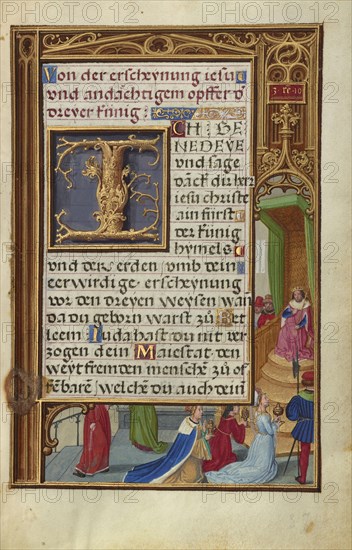 3·re·10
Von der erscheynung iesu
vnd andächtigem opffer d
dreyer künig:
ICH · BE
NEDEYE
vnd sage
dāck dir her
iesu christe
ain fürst
der künig
hymels
vnd der erden vmb dein
eerwirdige erscheynung
vor den dreyen weysen wan
da du geborn warst zů Bet
leem Iuda hast du nit ver
zogen dein Maiestat den
weyt fremden menschē zů of
fēbarē, welche du auch dein